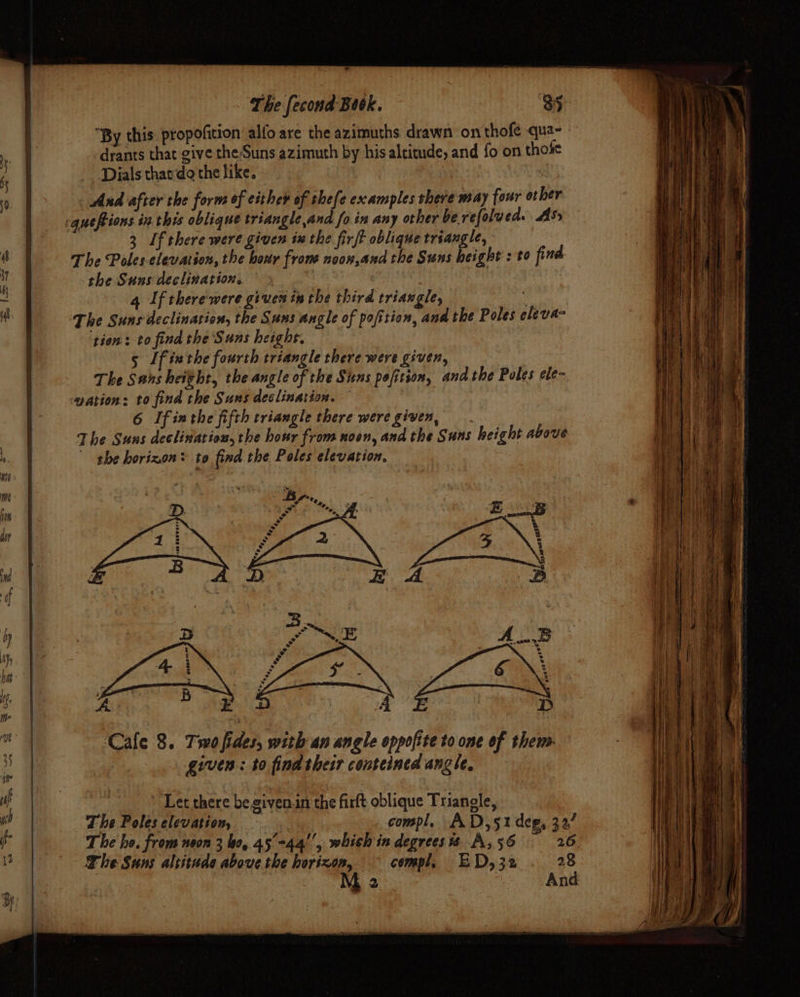 The ſecond Book. 85
By this propoſition alſo are the azimuths drawn on thoſe qua-
drants that give the Suns azimuth by his altitude, and ſo on thoſe
Dials that do the like.
And after the form of either of theſe examples there may four other
queſtions in this oblique triangle, and ſo in any other be reſolved. As,
3 If there were given in the firſt oblique triangle,
The Poles elevation, the hour from noon, and the Suns height : to find
the Suns declination.
4 If there were given in the third triangle,
The Suns declination, the Suns angle of poſition, and the Poles eleva-
tion: to find the Suns height.
5 If in the fourth triangle there were given,
The Suns height, the angle of the Suns poſition, and the Poles ele-
vation: to find the Suns declination.
6 If in the fifth triangle there were given,
The Suns declination, the hour from noon, and the Suns height above
the horizon: to find the Poles elevation.
D B A E B
1 2 3
E B A D E A D
D B E A B
4 5 6
A B E D A E D
Caſe 8. Two ſides, with an angle oppoſite to one of them
given : to find their conteined angle.
Let there be given in the firſt oblique Triangle,
The Poles elevation, compl. A D, 51 deg, 32'
The ho. from noon 3 ho, 45'-44'', which in degrees is A, 56 26
The Suns altitude above the horizon, compl. E D, 32 . 28
M 2 And